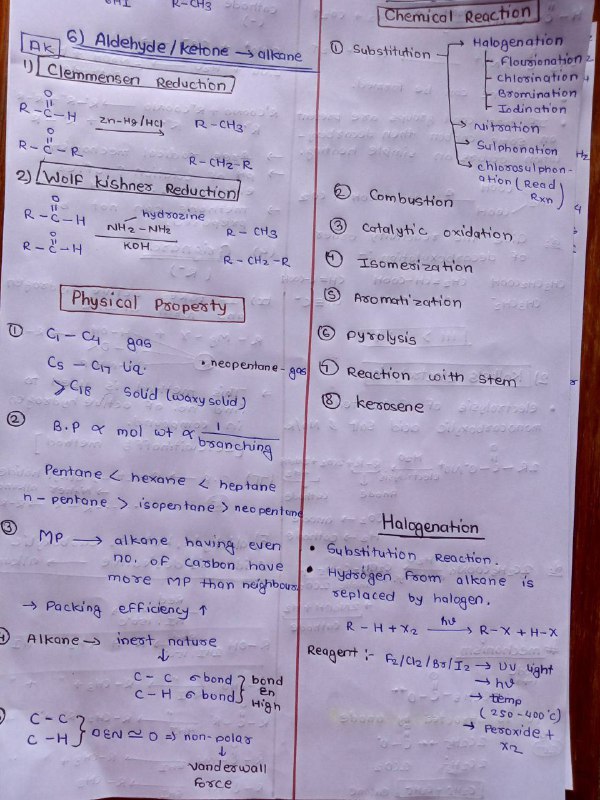 R-CH3
AK
6) Aldehyde/ketone → alkane
1) Clemmensen Reduction
O
R-C-H Zn-Hg/HCl R-CH3
O
R-C-R R-CH2-R
2) Wolf Kishner Reduction
O
R-C-H hydrozine R-CH3
NH2-NH2
KOH
O
R-C-H R-CH2-R
Physical Property
① C1-C4 gas
C5-C17 Liq. • neopentane-gas
>C18 Solid (waxy solid)
② B.P ∝ mol wt ∝ 1/branching
Pentane < hexane < heptane
n-pentane > isopentane > neopentane
③ MP → alkane having even
no. of carbon have
more MP than neighbours
→ Packing efficiency ↑
Alkane → inest nature
↓
C-C σ bond } bond
C-H σ bond } en High
C-C
C-H } ΔEN ≃ 0 ⇒ non-polar
↓
Vanderwall
force
Chemical Reaction
① Substitution → Halogenation
Flourionation
chlorination
Bromination
Iodination
→ Nitration
→ Sulphonation
→ chlorosulphon-
ation (Read
Rxn)
② Combustion
③ Catalytic oxidation
④ Isomerization
⑤ Aromatization
⑥ pyrolysis
⑦ Reaction with stem
⑧ kerosene
Halogenation
• Substitution Reaction.
• Hydrogen from alkane is
replaced by halogen.
R-H + X2 hν → R-X + H-X
Reagent :- F2/Cl2/Br/I2 → UV light
→ hν
→ temp
(250-400°C)
→ Peroxide +
X2